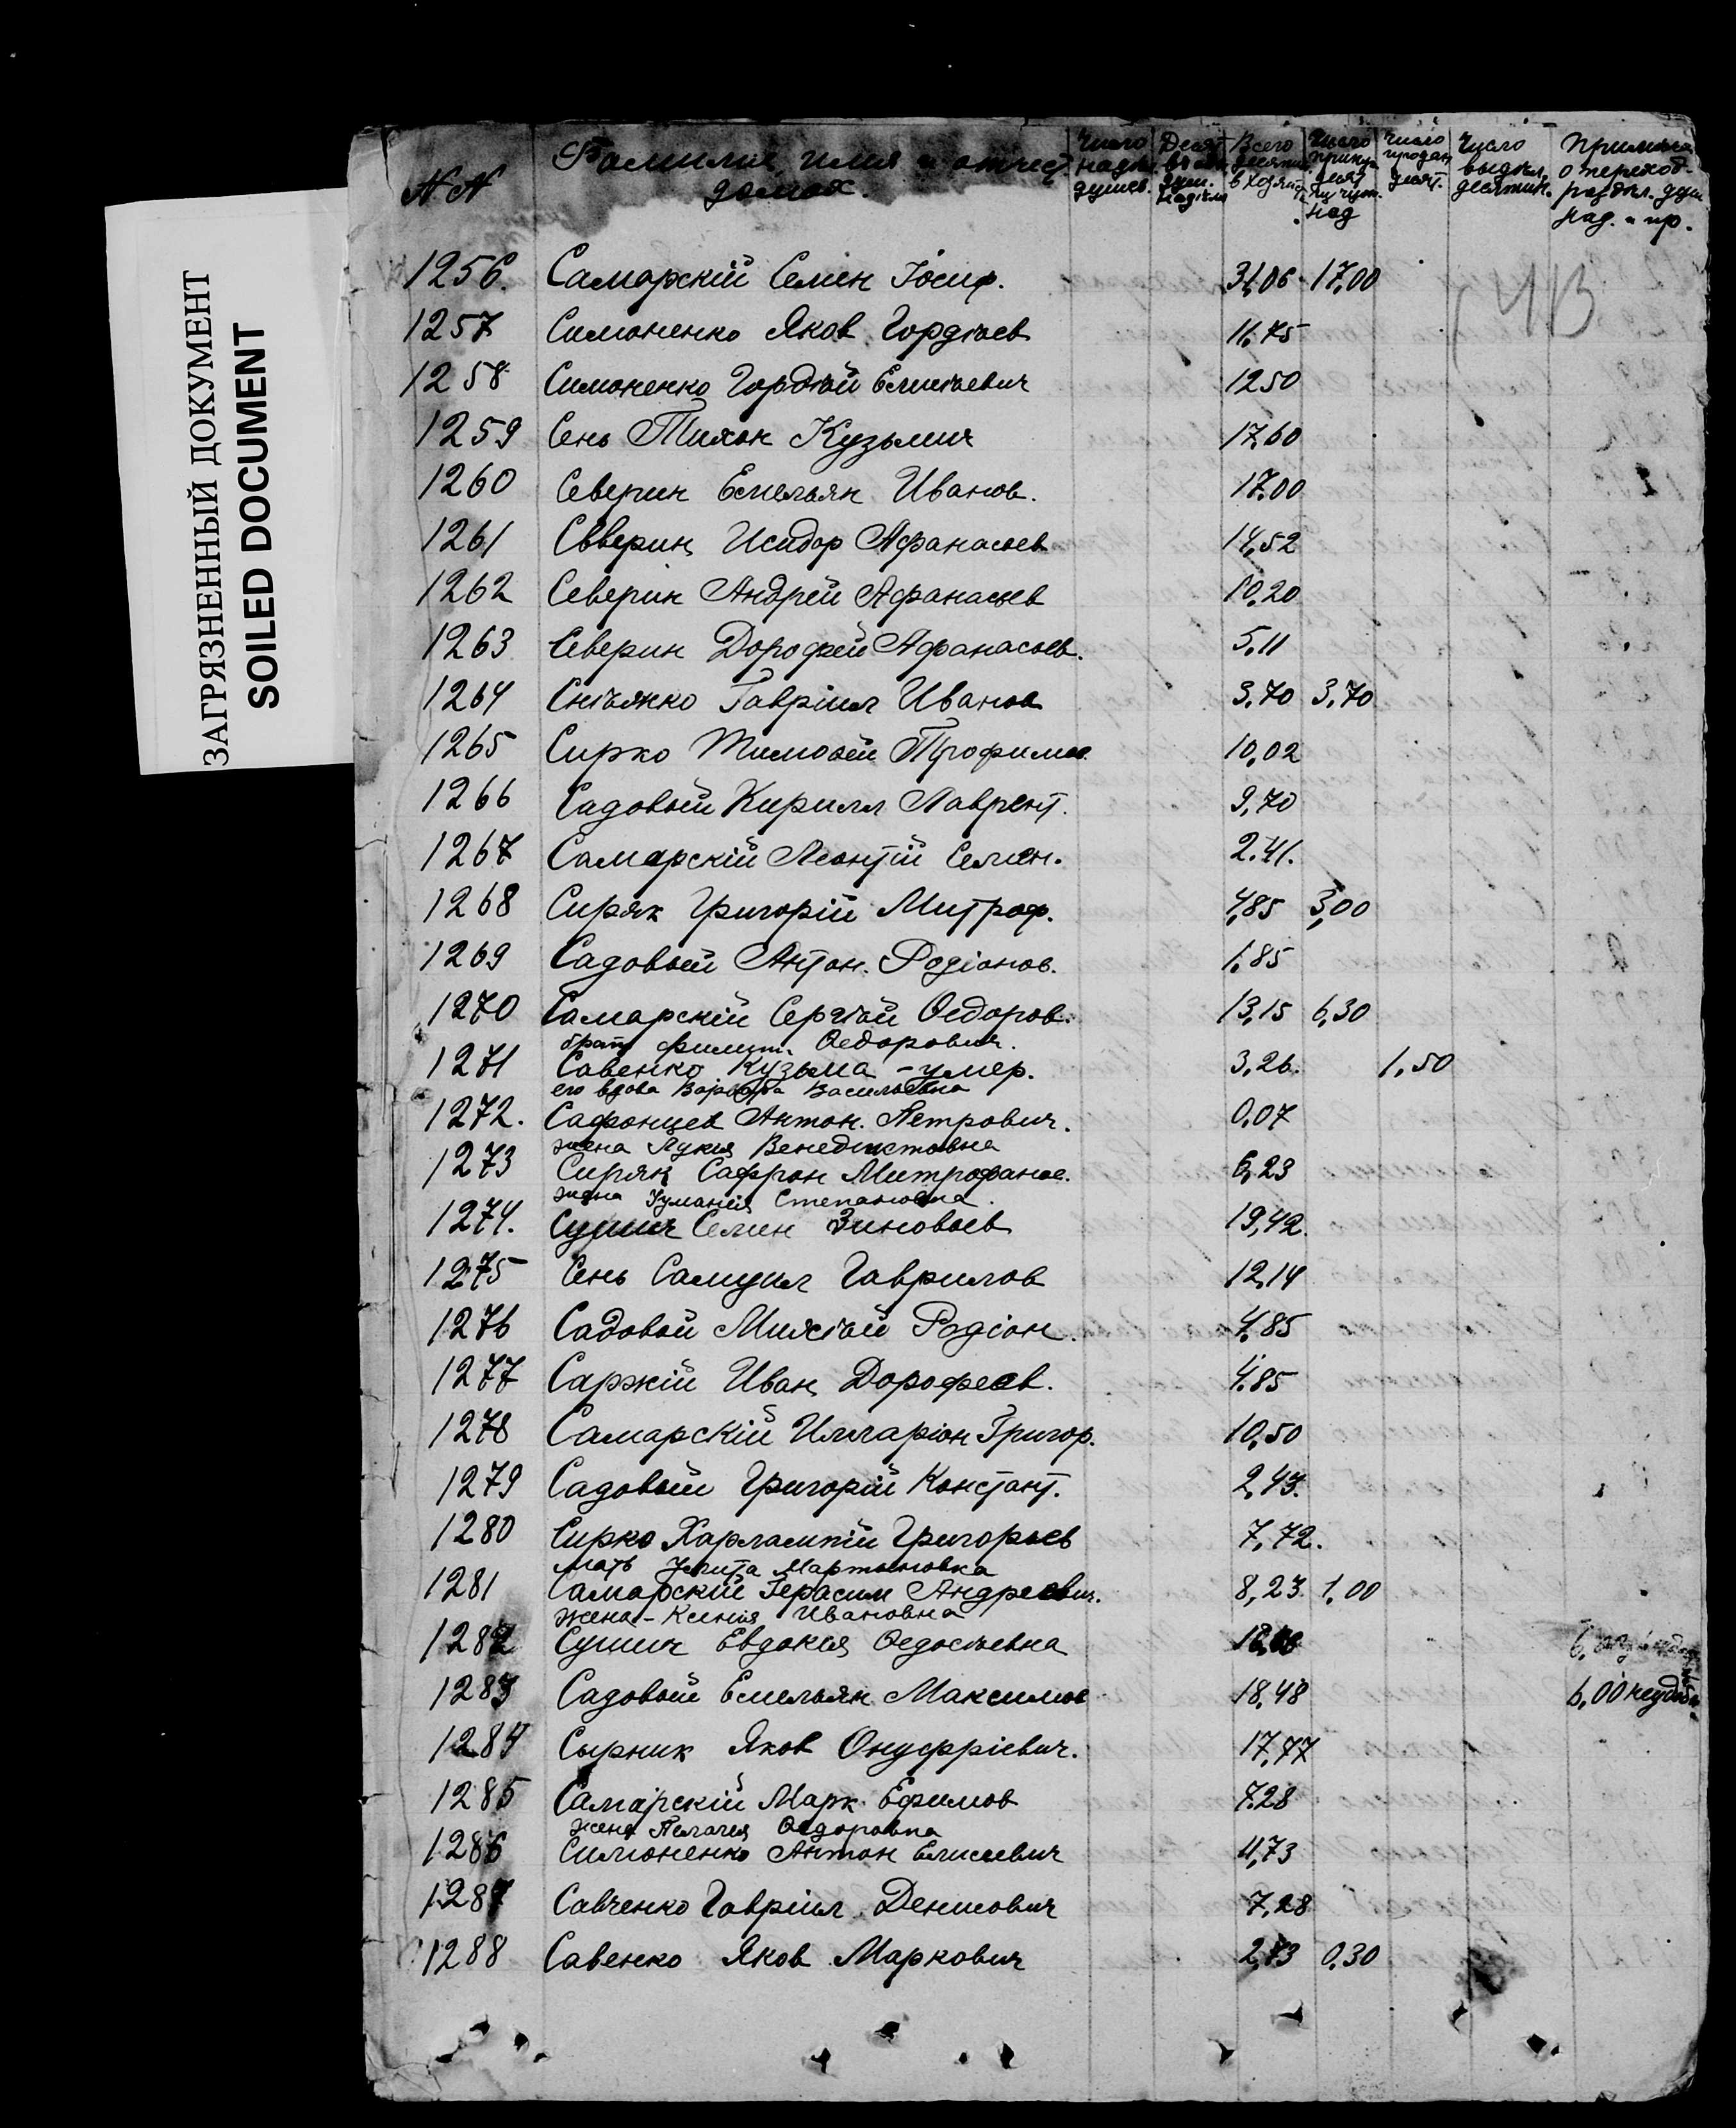 ЗАГРЯЗНЕННЫЙ ДОКУМЕНТ
SOILED DOCUMENT
N.N
Фамилия, имя и отчес.
домох.
Число надѣл. душев.
Десят. в душ. надѣла
Всего десятин в хозяйст.
Число прикуп. десят. над
Число продан. десят.
Число выдѣл. десятин.
Примѣча о переход. раздѣл. душ над. и пр.
1256. Самарскій Семен Іосиф. 31,06 17,00
1257 Симоненко Яков Гордѣев 11,75
1258 Симоненко Гордѣй Елисѣевич 12 50
1259 Сень Тихон Кузьмич 17,60
1260 Северин Емельян Иванов. 17,00
1261 Свверин Исидор Афанасьев 14,52
1262 Северин Андрей Афанасьев 10,20
1263 Северин Дорофей Афанасьев. 5,11
1264 Снѣжко Гавріил Иванов 3,70 3,70
1265 Сирко Тимоѳей Трофимов. 10,02
1266 Садовый Кирилл Лаврент. 9,70
1267 Самарскій Леонтій Семен. 2.41.
1268 Сиряк Григорій Митроф. 4,85 3,00
1269 Садовый Антон. Родіонов. 1,85
1270 Самарскій Сергѣй Ѳедоров. 13,15 6,30
брат Филип. Ѳедорович.
1271 Савенко Кузьма - умер. 3,26. 1,50
его вдова Варвара Васильевна
1272. Сафонцев Антон. Петрович. 0,07
жена Лукія Венедиктовна
1273 Сиряк Сафрон Митрофанов. 6,23
жена Степановна.
1274. Сушич Семен Зиновьев 19,42.
1275 Сень Самуил Гаврилов 12,14
1276 Садовой Михѣй Родіон. 4,85
1277 Саржій Иван Дорофеев. 4.85
1278 Самарскій Илларіон Григор. 10,50
1279 Садовый Григорій Констант. 2,43.
1280 Сирко Харлампій Григорьев 7,72.
мать Мартыновна
1281 Самарскій Герасим Андреевич. 8,23. 1,00
жена - Ксенія Ивановна
1282 Сушич Евдокія Ѳедосѣевна
1283 Садовый Емельян Максимов 18,48 6,00 неудоби.
1284 Сырник Яков Онуфріевич. 17,77
1285 Самарскій Марк Ефимов 7.28
жена Пелагея Ѳедоровна
1286 Симоненко Антон Елисеевич 4,73
1287 Савченко Гавріил Денисович 7,28
1288 Савенко Яков Маркович 2,73 0,30